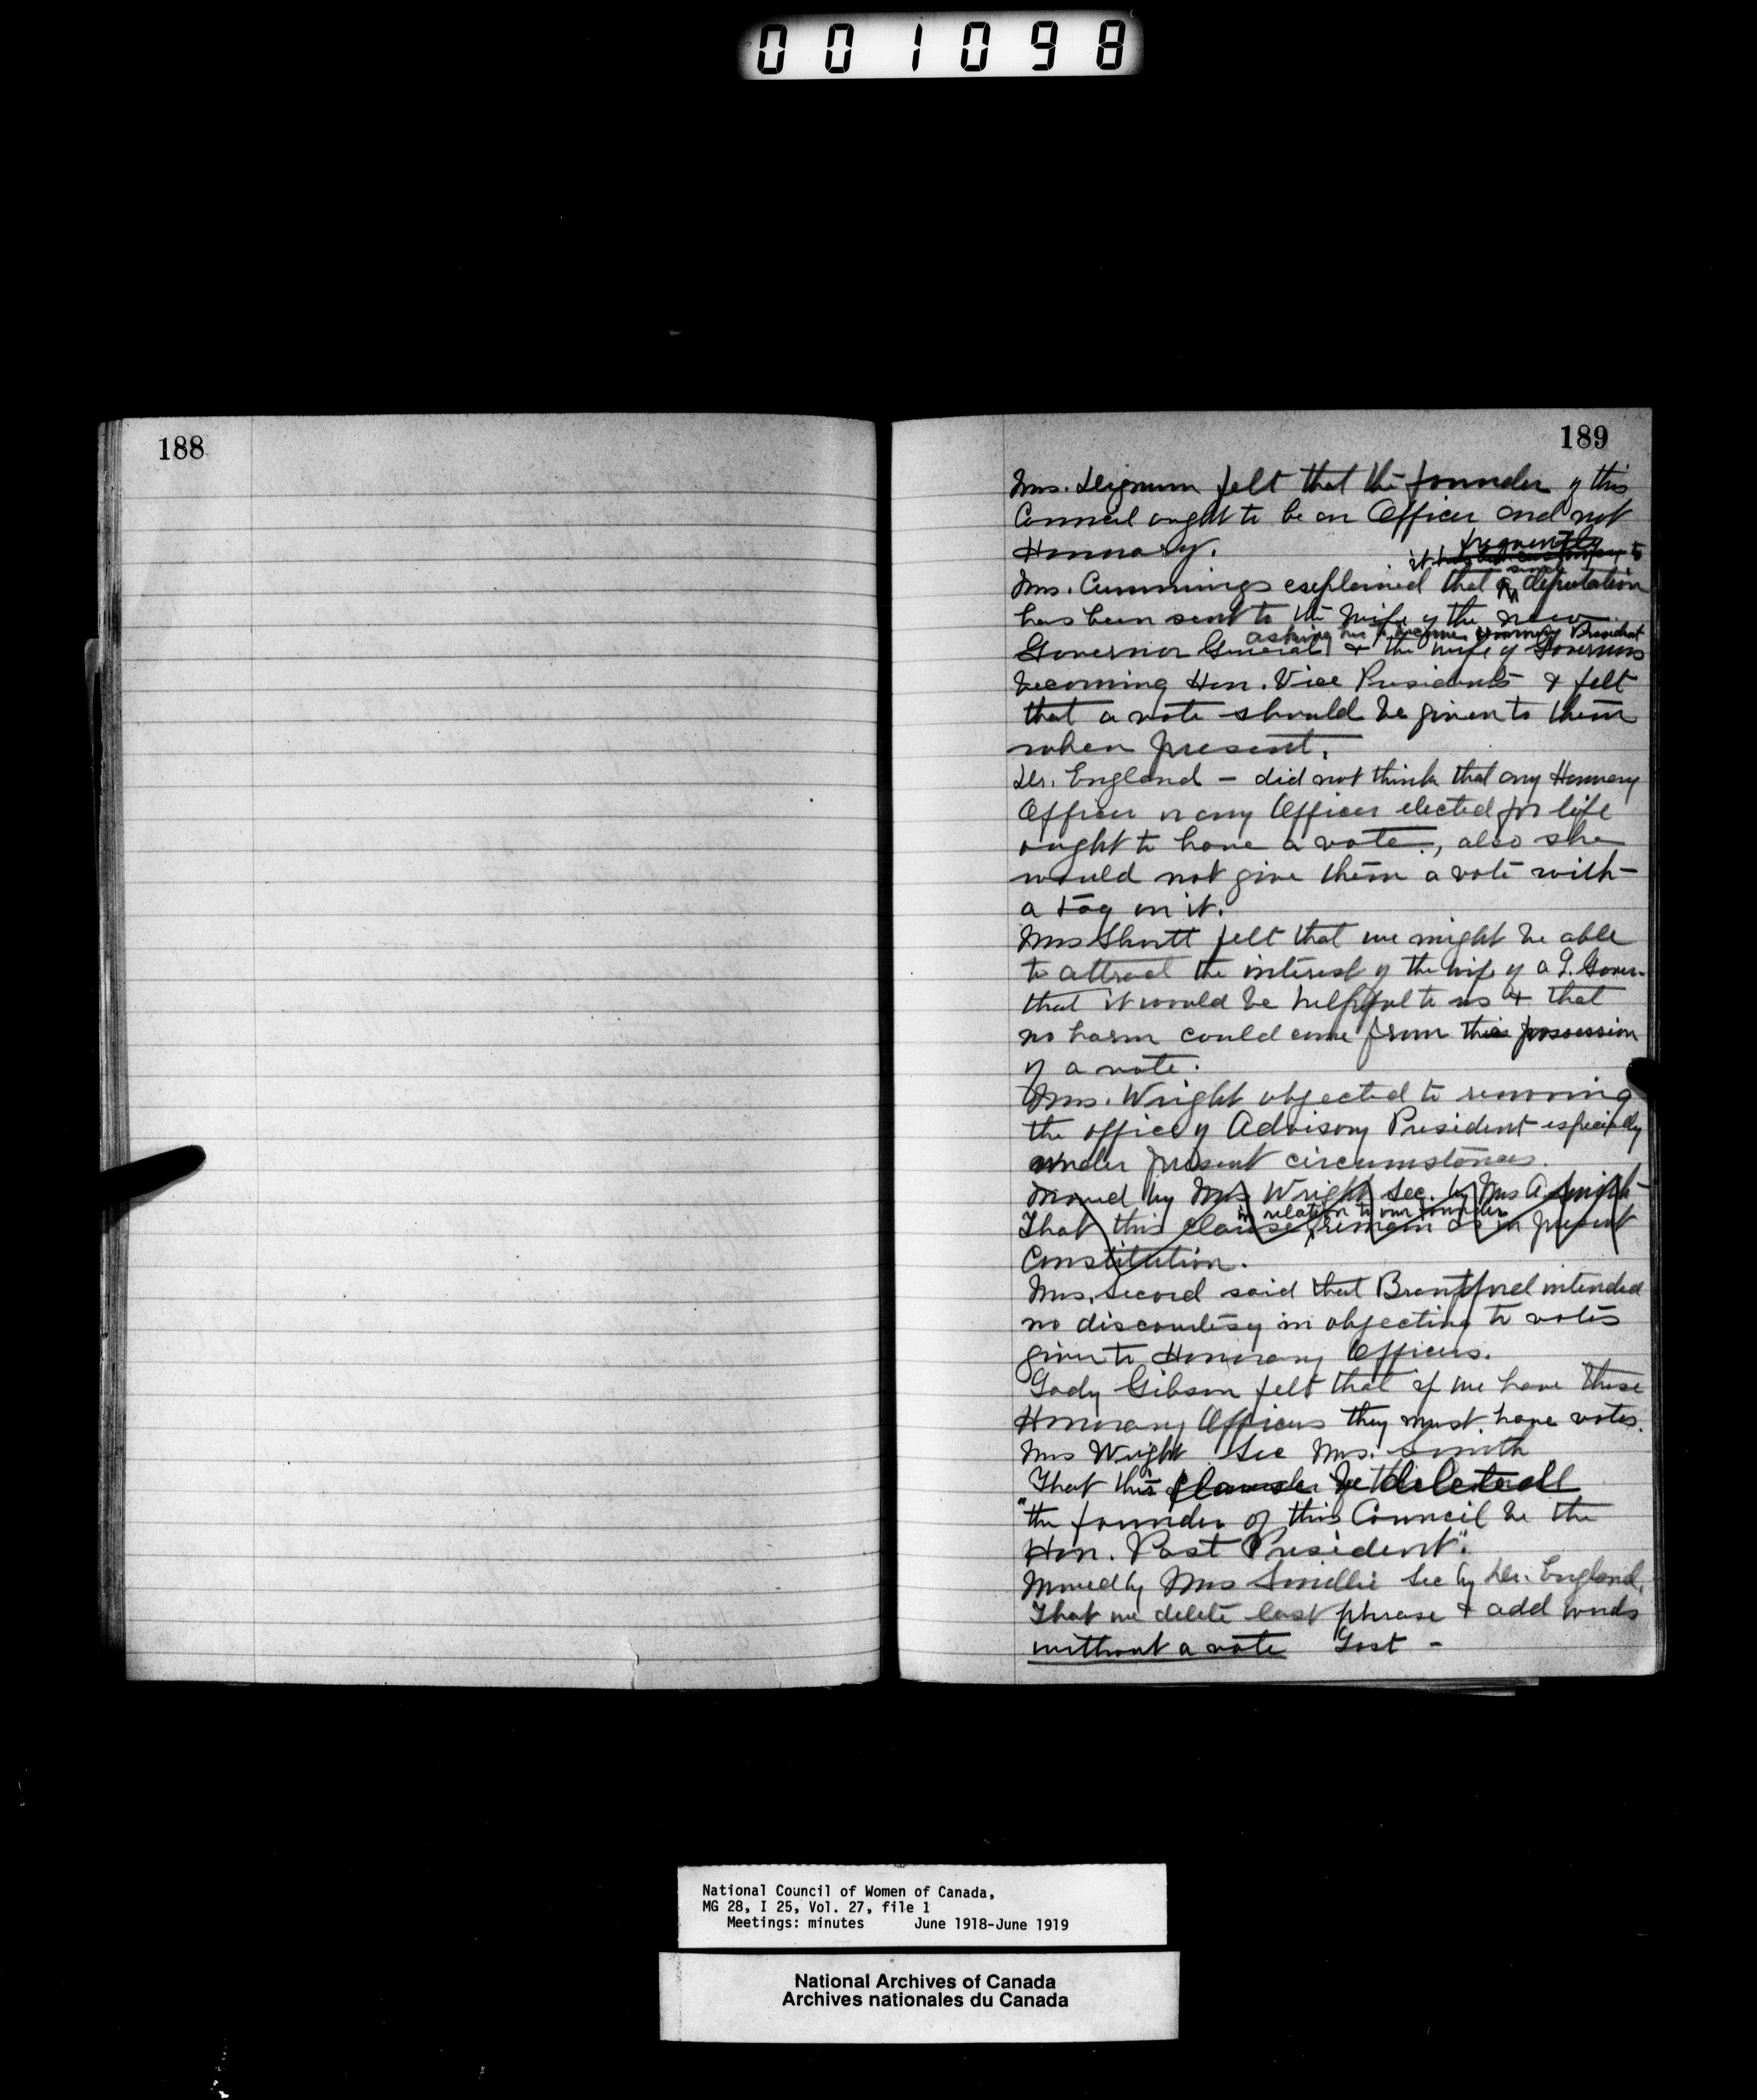 001098
188
189
Mrs. felt that the founder of this
Council ought to be an Officer and not
Honorary.
frequently
it has been customary to
since
Mrs. Cummings explained that a deputation
has been sent to the wife of the new
asking her to become Honorary President
Governor General & the wife of Governors
becoming Hon. Vice Presidents & felt
that a vote should be given to them
when present.
Dr. England - did not think that any Honorary
Officer or any Officer elected for life
ought to have a vote, also she
would not give them a vote with
a tag on it.
Mrs Shortt felt that we might be able
to attract the interest of the wife of a L. Gover.
that it would be helpful to us & that
no harm could come from this possession
of a vote.
Mrs. Wright objected to removing
the office of Advisory President especially
under present circumstances.
Moved by Mrs Wright Sec. by Mrs A. Smith
in relation to our founder
That this clause remain as in present
Constitution.
Mrs. Secord said that Brantford intended
no discourtesy in objecting to votes
given to Honorary Officers.
Lady Gibson felt that if we have these
Honorary Officers they must have votes.
Mrs Wright Sec Mrs. Smith
That this clause be deleted
"the founder of this Council be the
Hon. Past President".
Moved by Mrs Smellie Sec by Dr. England.
That we delete last phrase & add words
without a vote Lost -
National Council of Women of Canada,
MG 28, I 25, Vol. 27, file 1
Meetings: minutes June 1918-June 1919
National Archives of Canada
Archives nationales du Canada